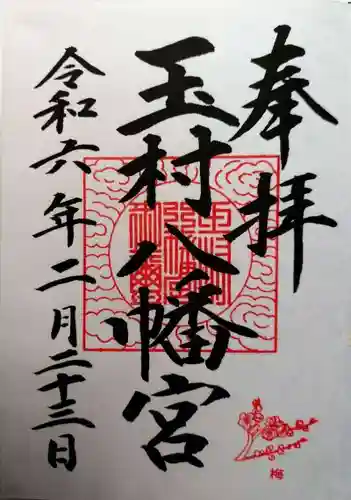 奉拝
玉村八幡宮
令和六年二月二十三日
梅